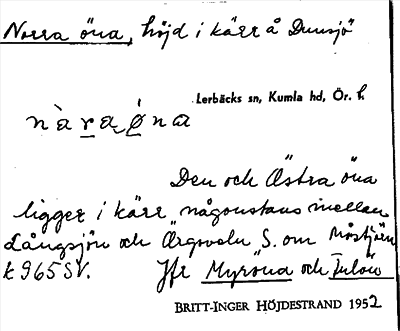 Norra öna, höjd i kärr å Dunsjö
Lerbäcks sn, Kumla hd, Ör. l.
nàra ǿna
Den och Östra öna
ligger i kärr någonstans mellan
Långsjön och S. om
k 965 SV. Jfr Myröna och
BRITT-INGER HÖJDESTRAND 1952